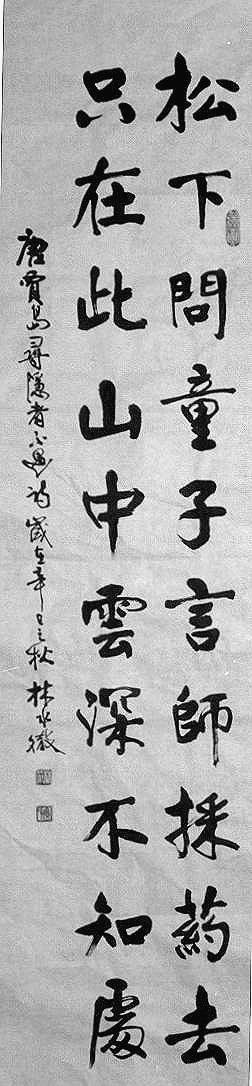 松下問童子言師採葯去
只在此山中雲深不知處
唐賈島尋隱者不遇詩歲在辛巳之秋林水徵